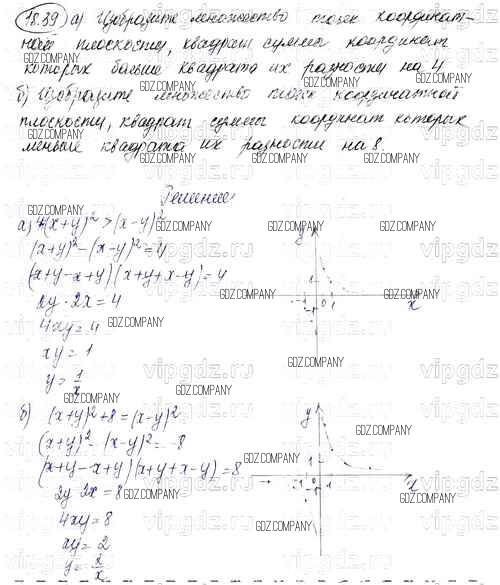 18.39 а) Изобразите множество точек координат-
ной плоскости, квадрат суммы координат
которых больше квадрата их разности на 4
б) Изобразите множество точек координатной
плоскости, квадрат суммы координат которых
меньше квадрата их разности на 8.
Решение
а) (x+y)² > (x-y)²
(x+y)² - (x-y)² = 4
(x+y-x+y)(x+y+x-y) = 4
2y · 2x = 4
4xy = 4
xy = 1
y = 1/x
б) (x+y)² + 8 = (x-y)²
(x+y)² - (x-y)² = -8
(x+y-x+y)(x+y+x-y) = 8
2y 2x = 8
4xy = 8
xy = 2
y = 2/x
y
1
-1 0 1
-1
x
y
1
-1 0 1
-1
x
GDZ.COMPANY
vipgdz.ru